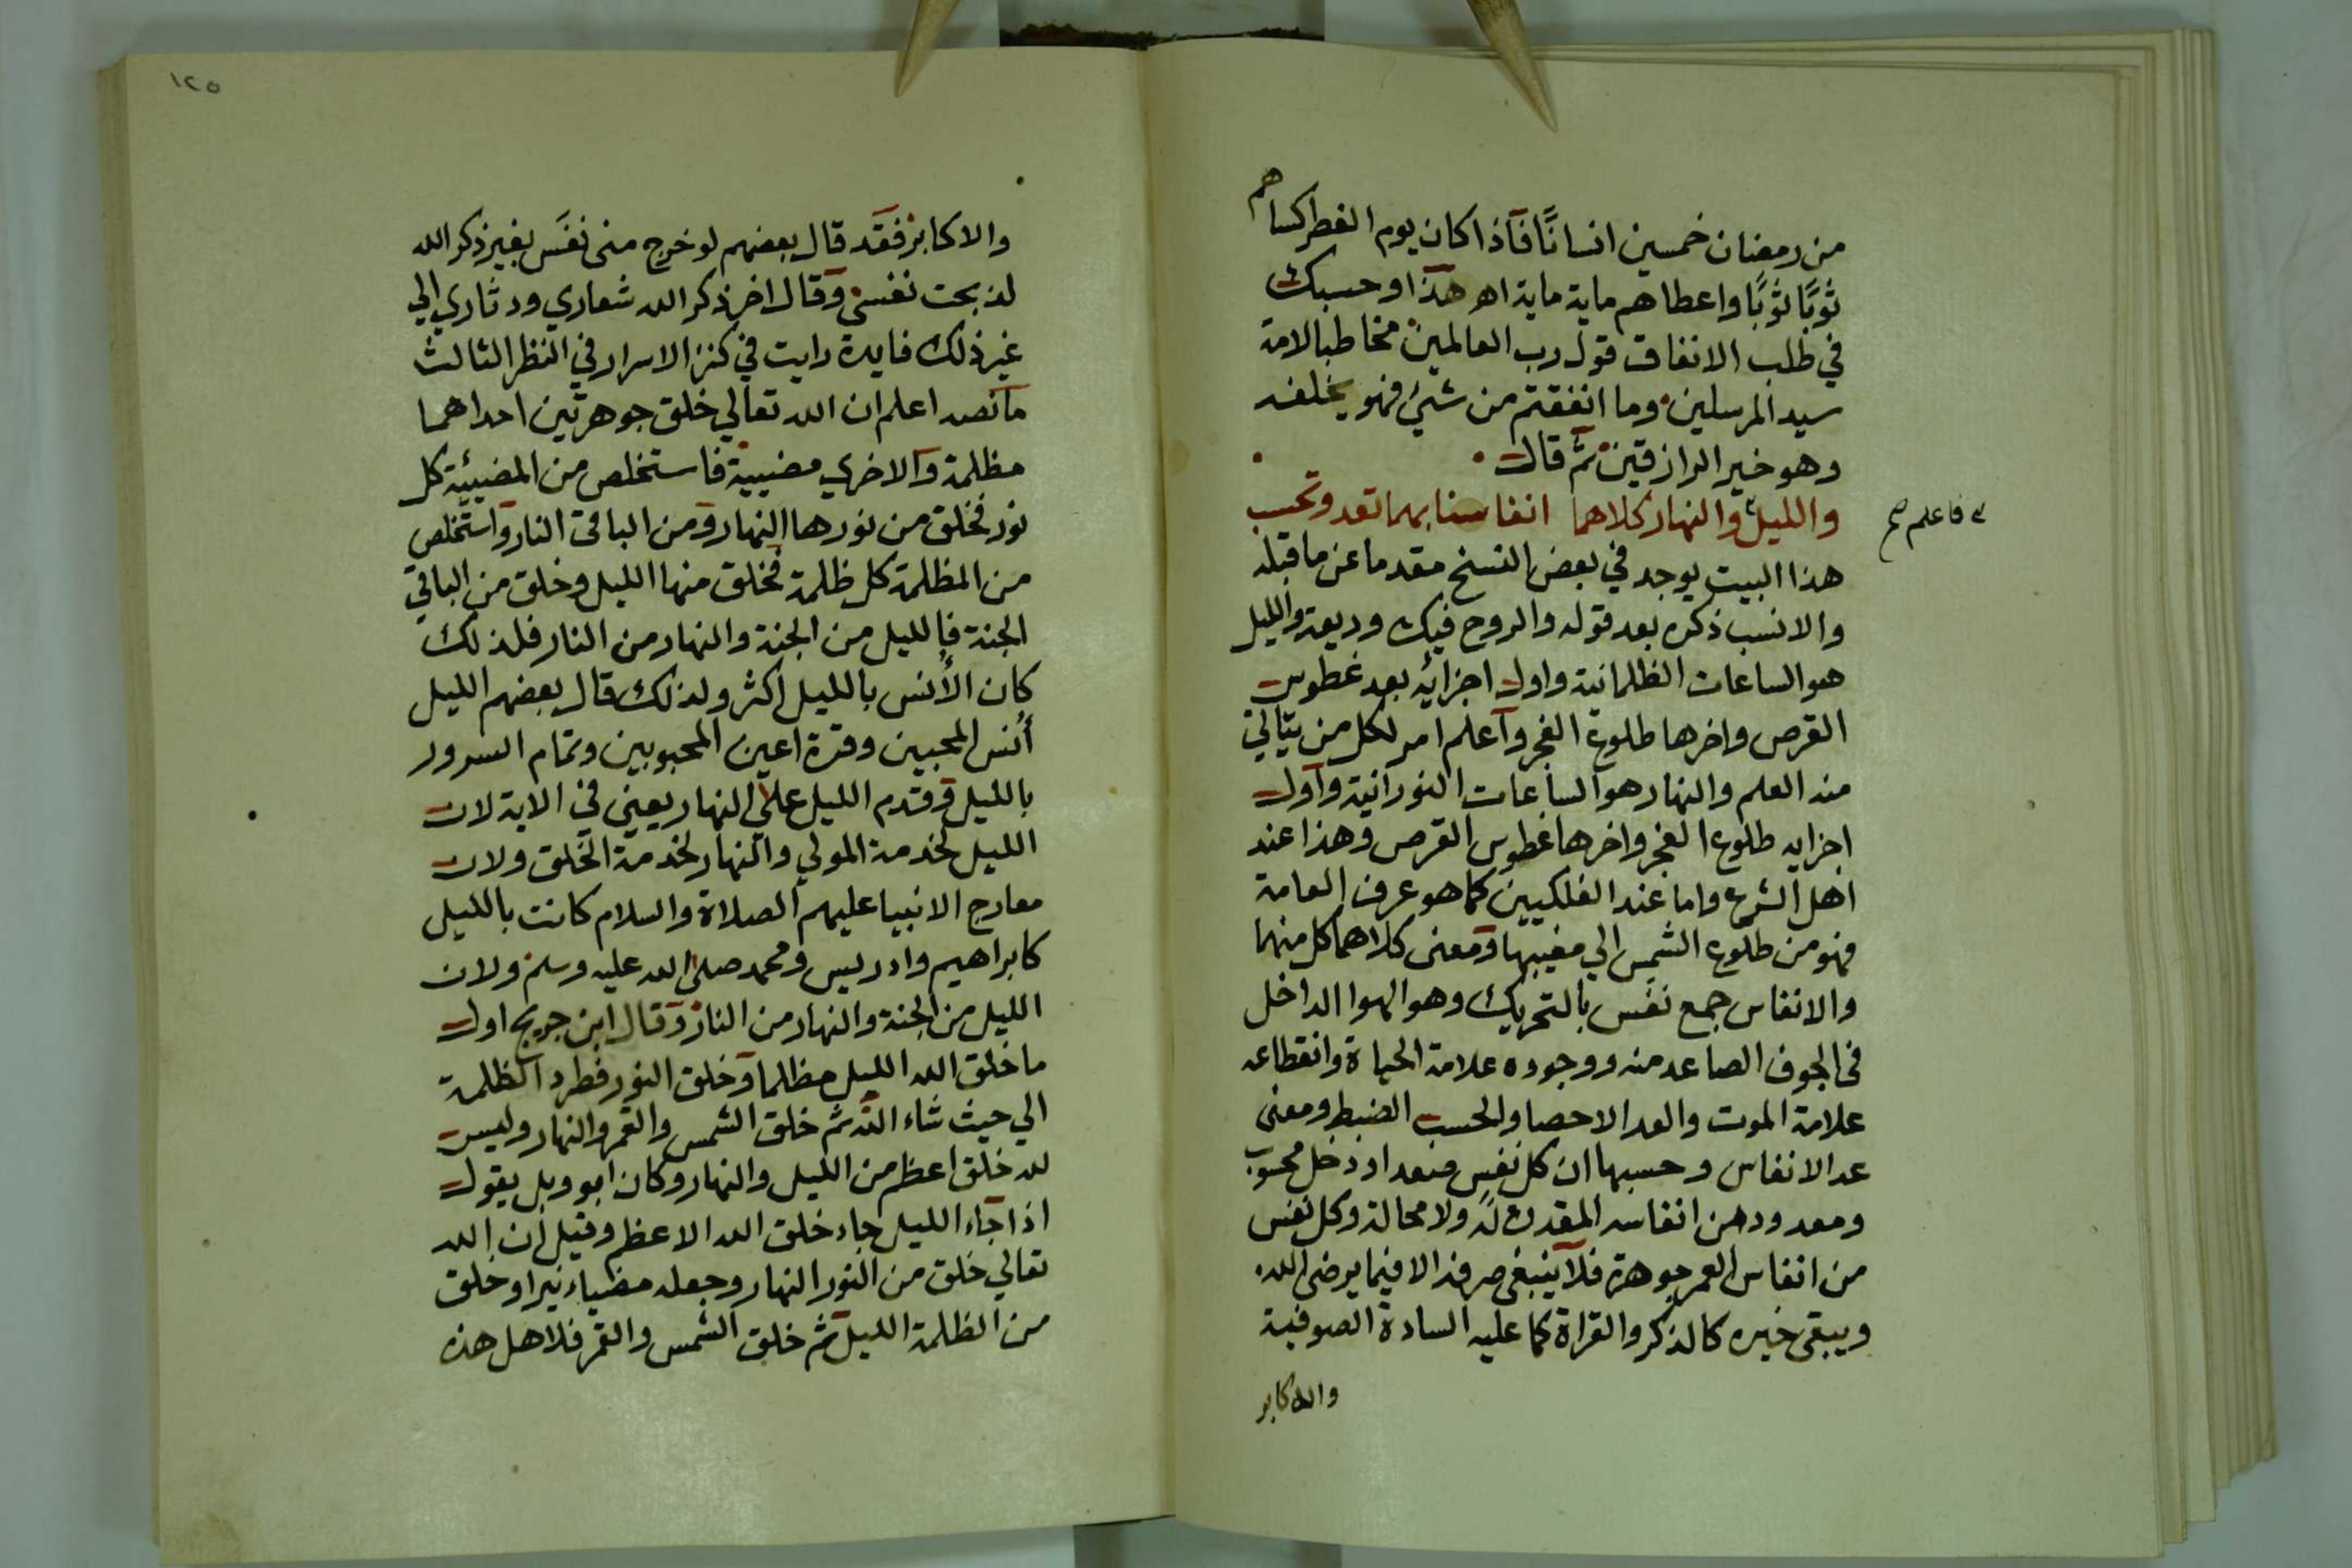 من رمضان خمسين انسانًا فاذا كان يوم الفطر كساهم
ثوبًا ثوبًا واعطاهم ماية ماية اهـ هذا وحسبك
في طلب الانفاق قول رب العالمين مخاطبا لامة
سيد المرسلين وما انفقتم من شيئ فهو يخلفه
وهو خير الرازقين ثم قال
والليل فاعلم صح والنهار كلاهما انفاسنا بهما تعد وتحسب
هذا البيت يوجد في بعض النسخ مقدما عن ما قبله
والانسب ذكره بعد قوله والروح فيك وديعة والليل
هو الساعات الظلمانية واول اجزائه بعد غطوس
القرص واخرها طلوع الفجر واعلم امر لكل من يتاتي
منه العلم والنهار هو الساعات النورانية واول
اجزايه طلوع الفجر واخرها غطوس القرص وهذا عند
اهل الشرع واما عند الفلكيين كما هو عرف العامة
فهو من طلوع الشمس الي مغيبها ومعنى كلاهما كل منهما
والانفاس جمع نفَس بالتحريك وهو الهوا الداخل
في الجوف الصاعد منه ووجوده علامة الحياة وانقطاعه
علامة الموت والعد الاحصا والحسب الضبط ومعنى
عد الانفاس وحسبها ان كل نفس صعد او دخل محسوب
ومعدود من انفاسه المقدرة له ولا محالة وكل نفس
من انفاس العمر جوهرة فلا ينبغي صرفه الا فيما يرضى الله
ويبقى خيره كالذكر والقراة كما عليه السادة الصوفية
والاكابر
١٢٥
والاكابر فقد قال بعضهم لو خرج منى نفَس بغير ذكر الله
لذبحت نفسي وقال اخر ذكر الله شعاري ودثاري الي
غير ذلك فايدة رايت في كنز الاسرار في النظر الثالث
ما نصه اعلم ان الله تعالي خلق جوهرتين احداهما
مظلمة والاخري مضيية فاستخلص من المضيئة كل
نور فخلق من نورها النهار ومن الباقى النار واستخلص
من المظلمة كل ظلمة فخلق منها الليل وخلق من الباقي
الجنة فالليل من الجنة والنهار من النار فلذلك
كان الأنس بالليل اكثر ولذلك قال بعضهم الليل
أنس المحبين وقرة اعين المحبوبين وتمام السرور
بالليل وقدم الليل علي النهار يعني في الاية لان
الليل لخدمة المولي والنهار لخدمة الخلق ولان
معارج الانبيا عليهم الصلاة والسلام كانت بالليل
كابراهيم وادريس ومحمد صلى الله عليه وسلم ولان
الليل من الجنة والنهار من النار وقال ابن جريج اول
ما خلق الله الليل مظلما وخلق النور فطرد الظلمة
الي حيث شاء الله ثم خلق الشمس والقمر والنهار وليس
لله خلق اعظم من الليل والنهار وكان ابو وبل يقول
اذا جاء الليل جاء خلق الله الاعظم وقيل ان الله
تعالي خلق من النور النهار وجعله مضياء نيرا وخلق
من الظلمة الليل ثم خلق الشمس والقمر فلاهل هذه